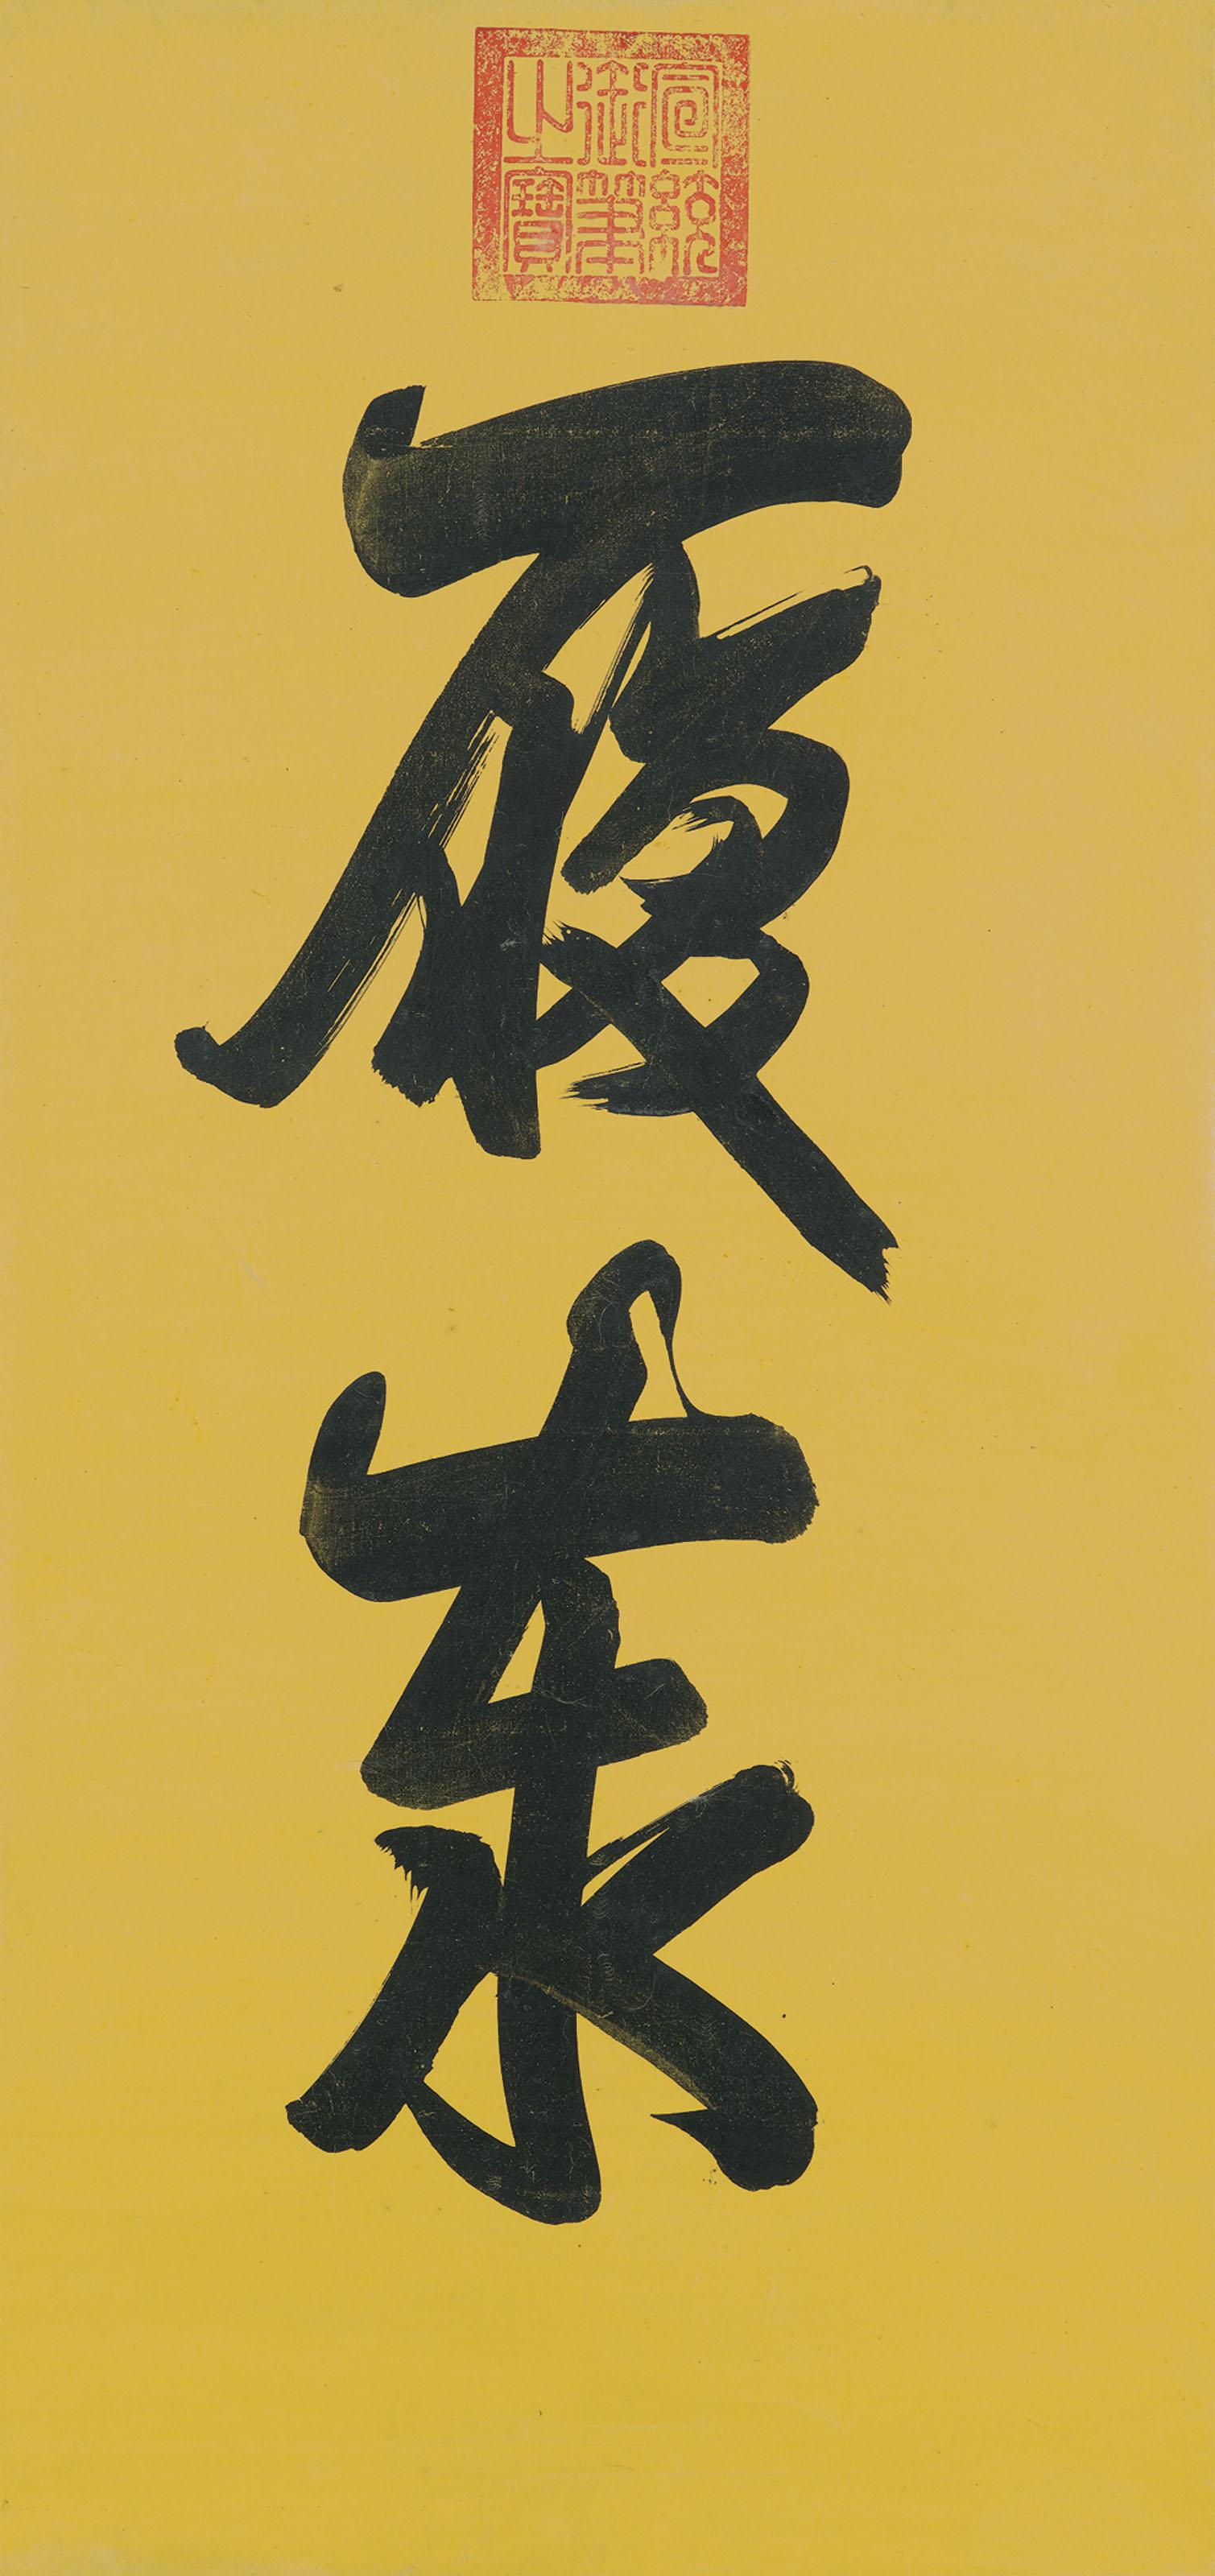 宣統
御筆
之寶
履泰